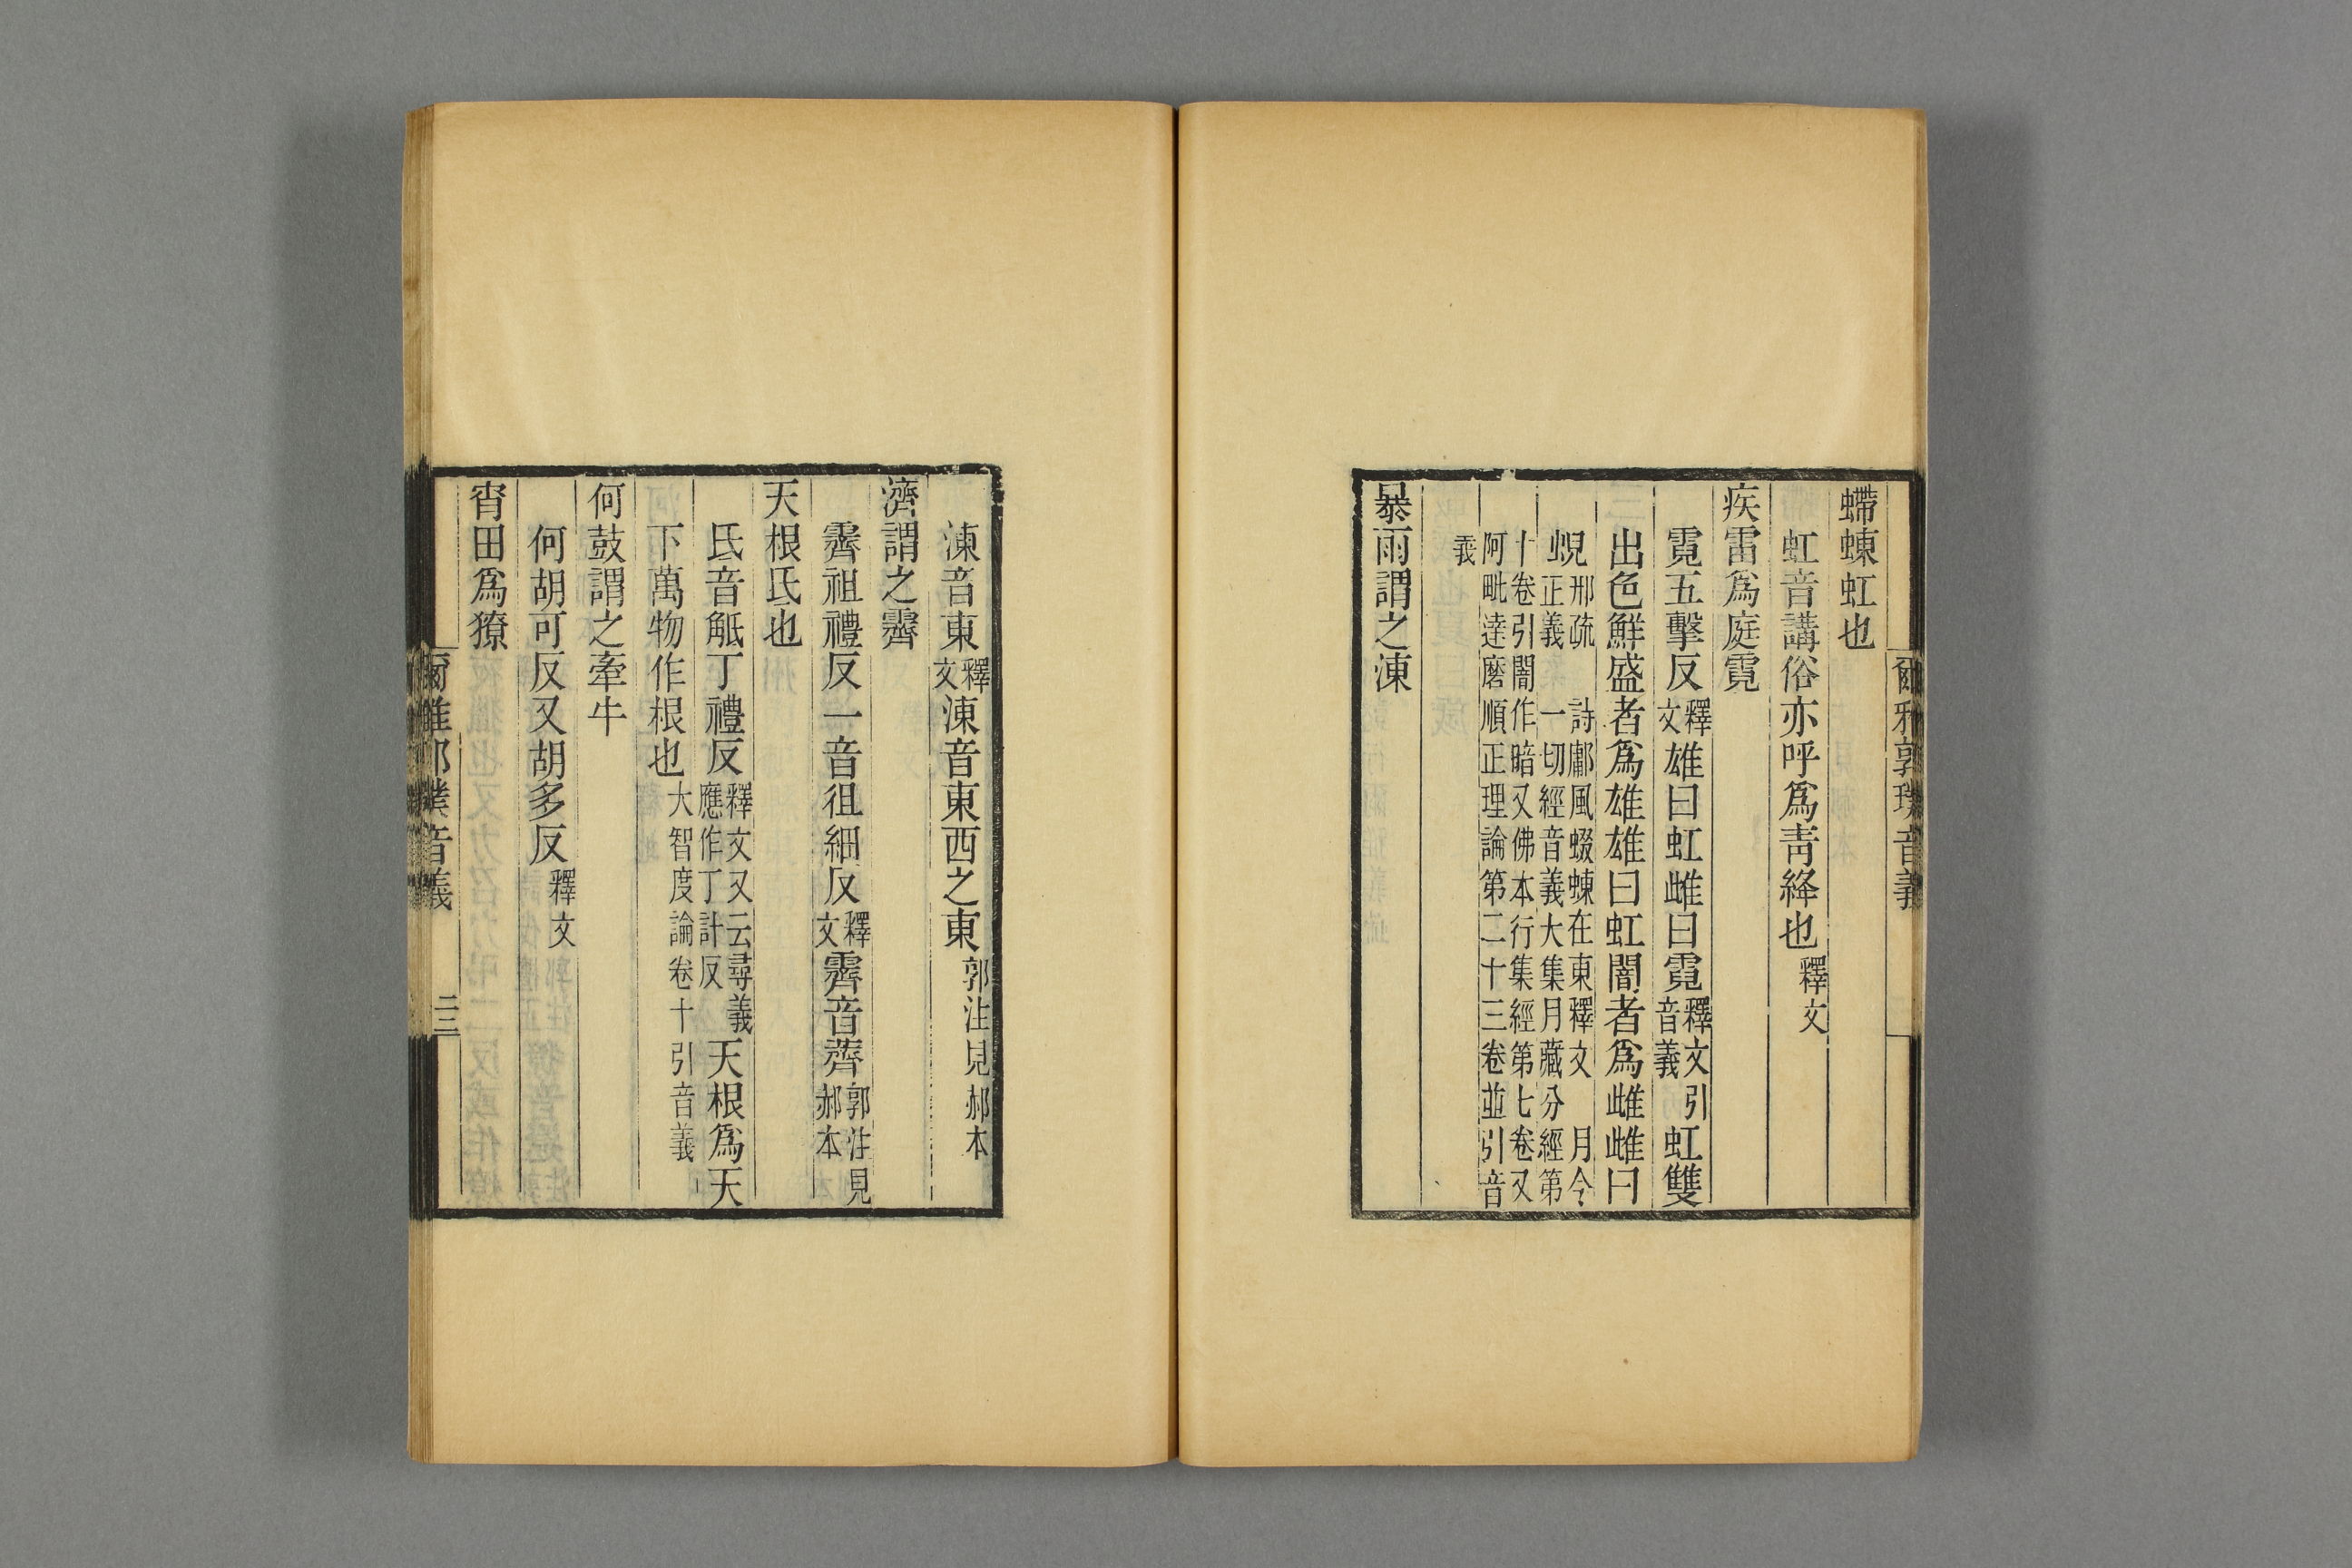 爾雅郭璞音義
螮蝀虹也
虹音講俗亦呼爲靑絳也釋文
疾雷爲庭霓
霓五擊反釋文雄曰虹雌曰霓釋文引音義虹雙
出色鮮盛者爲雄雄曰虹闇者爲雌雌曰
蜺邢疏 詩鄘風蝃蝀在東釋文 月令
正義 一切經音義大集月藏分經第
十卷引闇作暗又佛本行集經第七卷又
阿毗達磨順正理論第二十三卷並引音
義
暴雨謂之涷
涷音東釋文涷音東西之東郭注見郝本
濟謂之霽
霽祖禮反一音徂細反釋文霽音薺郭注見郝本
天根氐也
氐音觝丁禮反釋文又云尋義應作丁計反天根爲天
下萬物作根也大智度論卷十引音義
何鼓謂之牽牛
何胡可反又胡多反釋文
宵田爲獠
爾雅郭璞音義 三